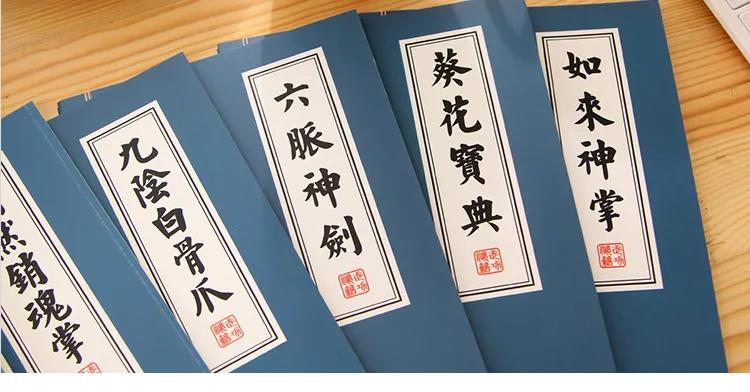 然銷魂掌
九陰白骨爪
六脈神劍
葵花寶典
如來神掌